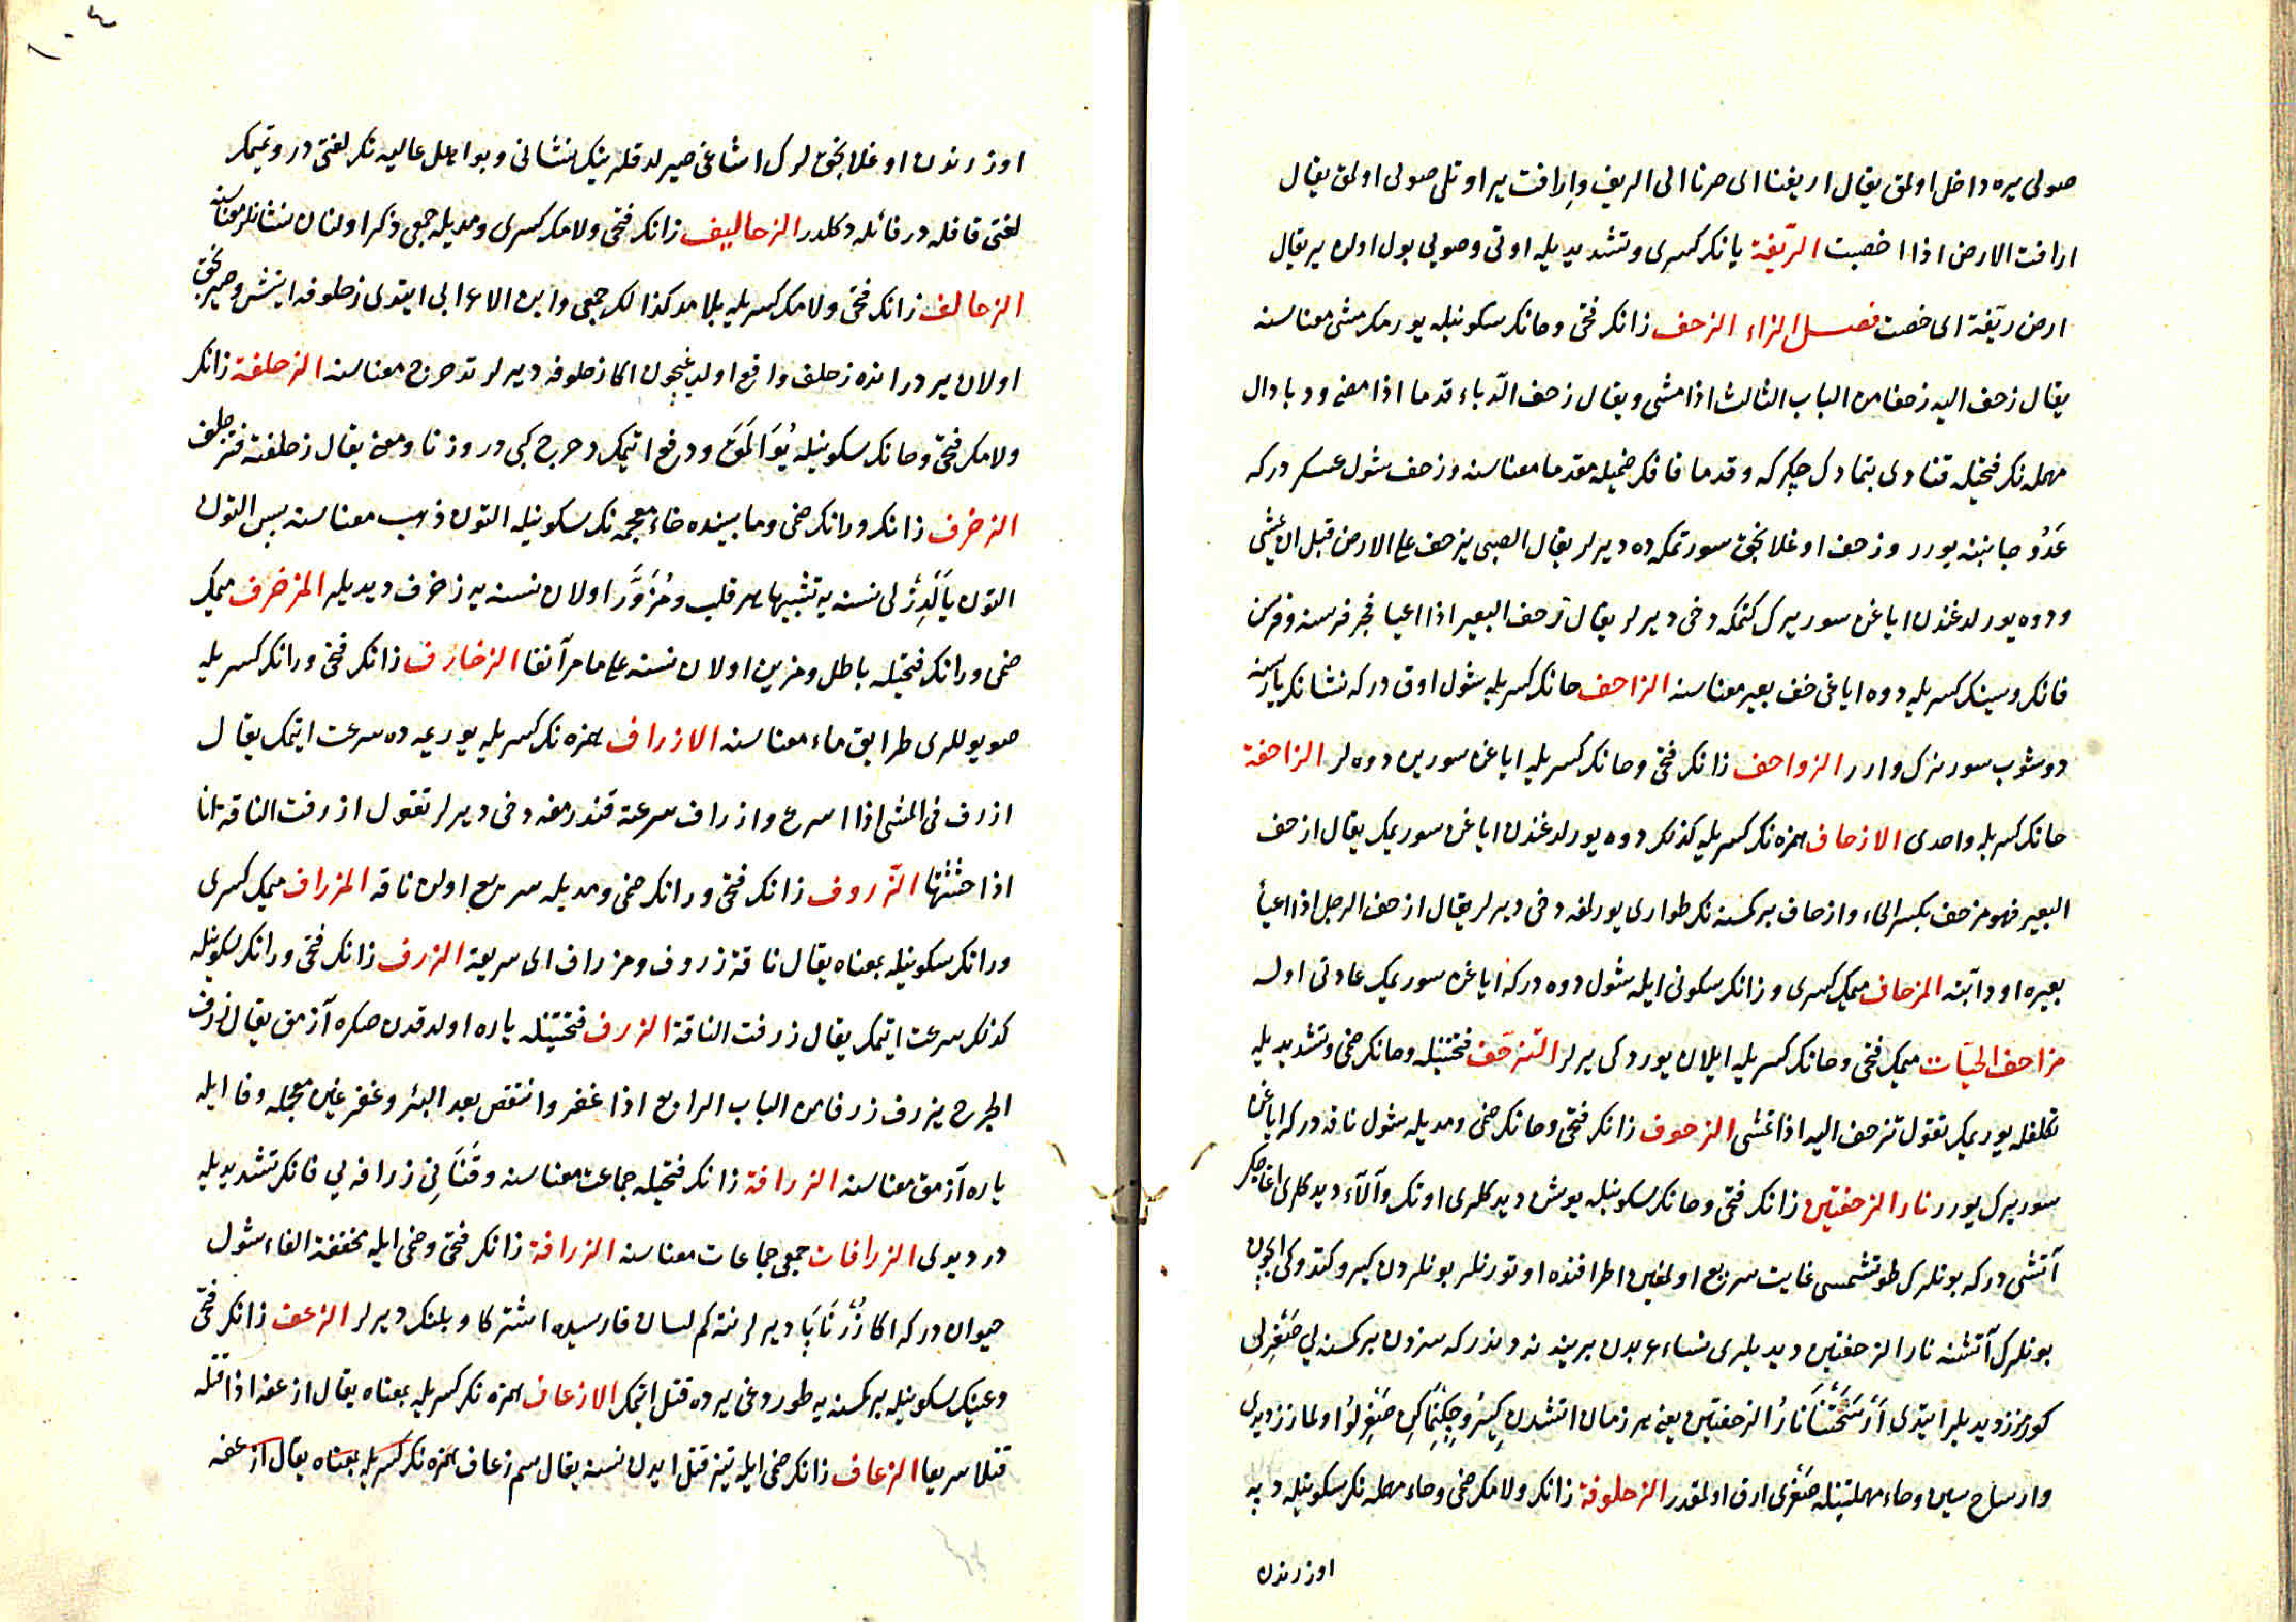 صولی یره داخل اولمق یقال اریفنا ای صرنا الی الریف وارافت یر اوتلی صولی اولمق یقال
ارافت الارض اذا اخصبت الریّفة یانك كسری وتشدیدیله اوتی وصویی بول اولن یر یقال
ارض ریّفة ای خصبت فصل الزاء الزحف زانك فتحی وحانك سكونیله یورمك مشی معناسنه
یقال زحف الیه زحفا من الباب الثالث اذا مشی ویقال زحف الدّباء قدما اذا مضی ودبا دال
مهمله نك فتحیله قنادی بتمادك چكركه وقدما قافك ضمیله مقدما معناسنه وزحف شول عسكر دركه
عَدُوّ جانبنه یورر وزحف اوغلانجق سورتمكه ده دیرلر یقال الصبی یزحف علی الارض قبل ان یمشی
ودوه یورلدغندن ایاغن سوریرك كتمكه دخی دیرلر یقال زحف البعیر اذا اعیا فجر فرسنه وفرسن
فانك وسینك كسریله دوه ایاغی خف بعیر معناسنه الزاحف حانك كسریله شول اوق دركه نشانك یاریسنه
دوشوب سورنرك وارر الزواحف زانك فتحی وحانك كسریله ایاغن سورین دوه لر الزاحفة
حانك كسریله واحدی الازحاف همزه نك كسریله كذلك دوه یورلدغندن ایاغن سوریمك یقال ازحف
البعیر فهو مزحف بكسر الحاء وازحاف بر كمسنه نك طواری یورلمغه دخی دیرلر یقال ازحف الرجل اذا اعیأ
بعیره او دابّته المزحاف میمك كسری وزانك سكونی ایله شول دوه دركه ایاغن سوریمك عادتی اوله
مزاحف الحیّات میمك فتحی وحانك كسریله ایلان یوردكی یرلر التّزحّف فتحتینله وحانك ضمی وتشدیدیله
تكلفله یوریمك تقول تزحف الیه اذا تمشی الزحوف زانك فتحی وحانك ضمی ومدیله شول ناقه دركه ایاغن
سوریرك یورر نار الزحفتین زانك فتحی وحانك سكونیله یوشن دیدكلری اوتك وآلآء دیدكلری اغاجك
آتشی دركه بونلرك طوتشمسی غایت سریع اولمغین اطرافنده اوتورنلر بونلردن كیرو كتدوكی ایچون
بونلرك آتشنه نار الزحفتین دیدیلر نساء عربدن برینه نه دندركه سزدن بر كمسنه یی صَغْرِلی
كورمزز دیدیلر ایتدی أَرْسَحَتْنَا نَارُ الزحفتین یعنی هر زمان اتشدن كیرو چكنمك صَغْرلو اولمازز دیدی
وارساح سین وحاء مهملتینله صَغْری ارق اولمقدر الزحلوفة زانك ولامك ضمی وحاء مهمله نك سكونیله دپه
اوزرندن
١٠٤
اوزرندن اوغلانجقلرك اشاغی صیرلدقلرینك نشانی وبو اهل عالیه نك لغتی در وتمیمك
لغتی قافله در فائله دكلدر الزحالیف زانك فتحی ولامك كسری ومدیله جمعی ذكر اولنان نشانلر معناسنه
الزحالف زانك فتحی ولامك كسریله بلا مد كذالك جمعی وابن الاعرابی ایتدی زحلوفه اینش وصیرنجق
اولان یر در انده زحلف واقع اولدیغیچون اكا زحلوفه دیرلر تدحرج معناسنه الزحلفة زانك
ولامك فتحی وحانك سكونیله یُوَالَمَقْ ودفع اتیمك دحرج كبی در وزنا ومعنی یقال زحلفته فتزحلف
الزخرف زانك ورانك ضمی ومابینده خاء معجمه نك سكونیله التون ذهب معناسنه پس التون
التون یالدزلی نسنه یه تشبیها هر قلب ومُزَوَّر اولان نسنه یه زخرف دیدیلر المزخرف میمك
ضمی ورانك فتحیله باطل ومزین اولان نسنه علی ما مر آنفا الزخارف زانك فتحی ورانك كسریله
صویوللری طرایق ماء معناسنه الازراف همزه نك كسریله یوریمه ده سرعت ایتمك یقال
ازرف فی المشی اذا اسرع وازراف سرعته قندرمغه دخی دیرلر تقول ازرفت الناقة انا
اذا حثثتها الزّروف زانك فتحی ورانك ضمی ومدیله سریع اولن ناقه المزراف میمك كسری
ورانك سكونیله بمعناه یقال ناقة زروف ومزراف ای سریعة الزرف زانك فتحی ورانك سكونیله
كذلك سرعت ایتمك یقال زرفت الناقة الزرف فتحتینله یاره اولدقدن صكره آزمق یقال زرف
الجرح یزرف زرفا من الباب الرابع اذا غفر وانتقص بعد البرء وغفر غین معجمه وفا ایله
یاره آزمق معناسنه الزرافة زانك فتحیله جماعت معناسنه وقَنَانی زرافه یی فانك تشدیدیله
در دیدی الزرافات جمعی جماعات معناسنه الزرافة زانك فتحی وضمی ایله مخففة الفاء شول
حیوان دركه اكا زُرْنَاپَا دیرلر نته كم لسان فارسیده اشتر كاو پلنك دیرلر الزعف زانك فتحی
وعینك سكونیله بر كمسنه یه طوردوغی یرده قتل ایتمك الازعاف همزه نك كسریله بمعناه یقال ازعفه اذا قتله
قتلا سریعا الزعاف زانك ضمی ایله تیز قتل ایدن نسنه یقال سم زعاف همزه نك كسریله بمعناه یقال ازعفه